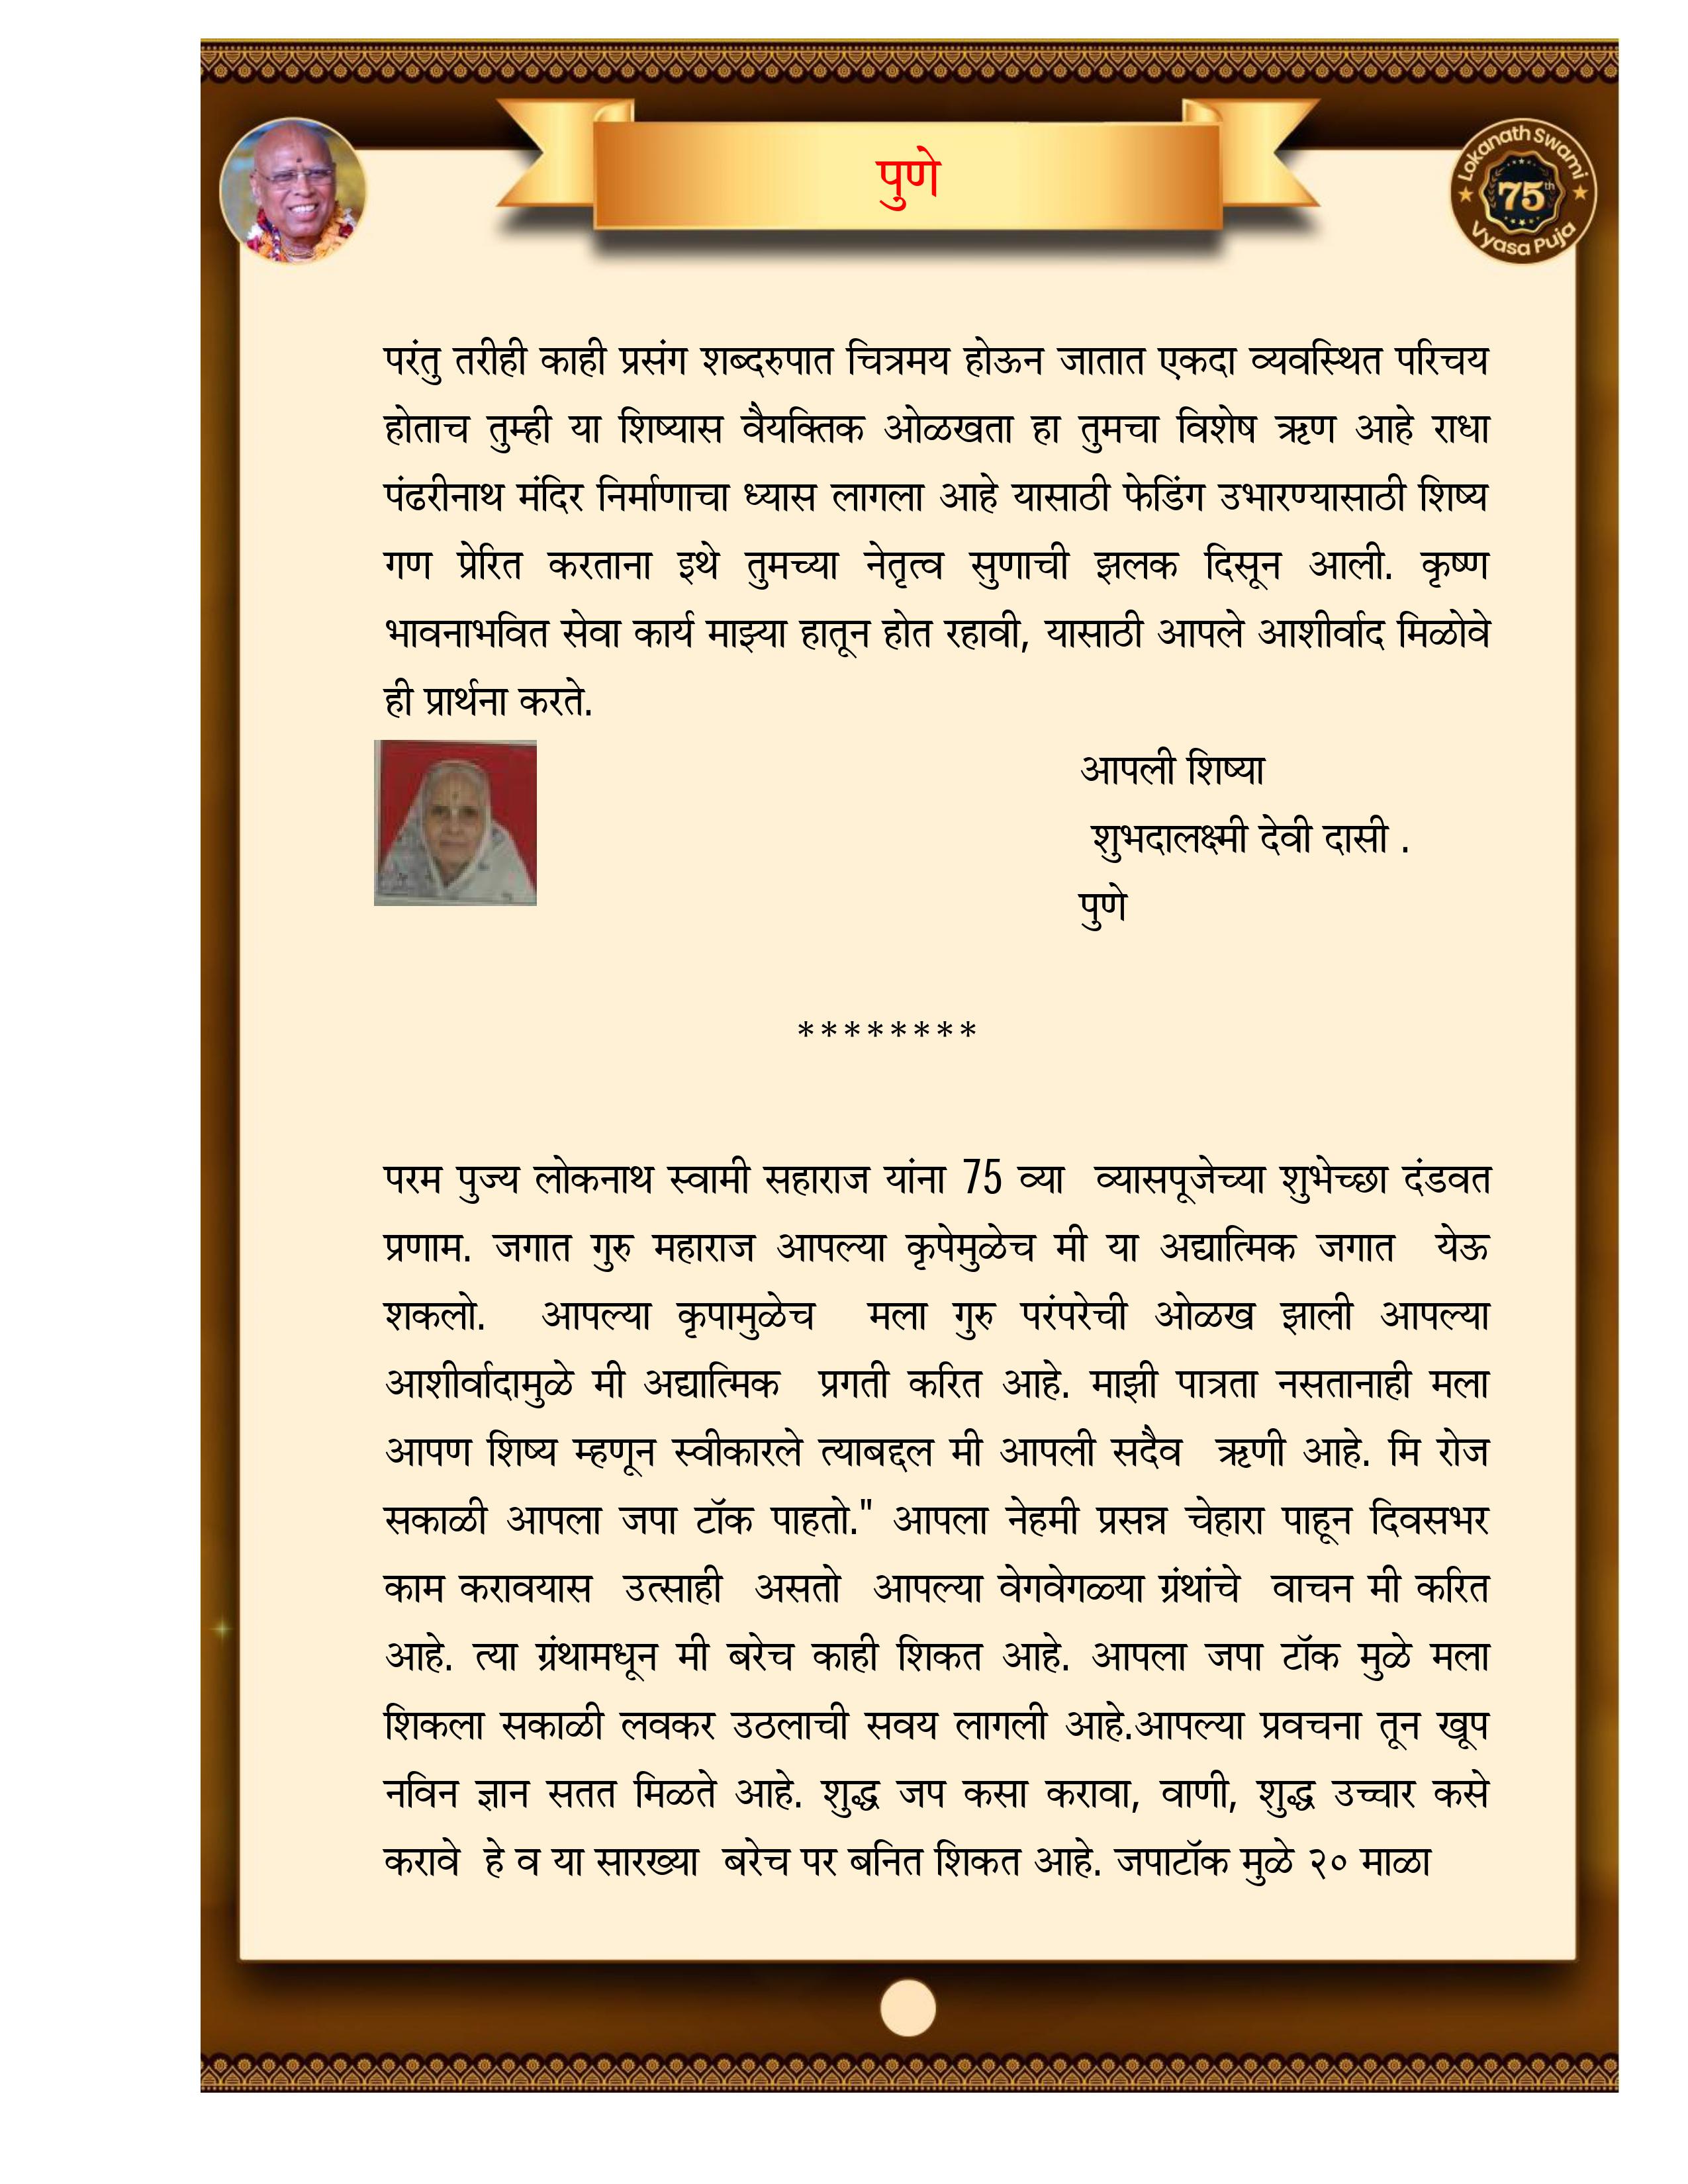 पुणे
Lokanath Swami
75th
Vyasa Puja
परंतु तरीही काही प्रसंग शब्दरुपात चित्रमय होऊन जातात एकदा व्यवस्थित परिचय
होताच तुम्ही या शिष्यास वैयक्तिक ओळखता हा तुमचा विशेष ऋण आहे राधा
पंढरीनाथ मंदिर निर्माणाचा ध्यास लागला आहे यासाठी फेडिंग उभारण्यासाठी शिष्य
गण प्रेरित करताना इथे तुमच्या नेतृत्व सुणाची झलक दिसून आली. कृष्ण
भावनाभवित सेवा कार्य माझ्या हातून होत रहावी, यासाठी आपले आशीर्वाद मिळोवे
ही प्रार्थना करते.
आपली शिष्या
शुभदालक्ष्मी देवी दासी .
पुणे
********
परम पुज्य लोकनाथ स्वामी सहाराज यांना 75 व्या व्यासपूजेच्या शुभेच्छा दंडवत
प्रणाम. जगात गुरु महाराज आपल्या कृपेमुळेच मी या अद्यात्मिक जगात येऊ
शकलो. आपल्या कृपामुळेच मला गुरु परंपरेची ओळख झाली आपल्या
आशीर्वादामुळे मी अद्यात्मिक प्रगती करित आहे. माझी पात्रता नसतानाही मला
आपण शिष्य म्हणून स्वीकारले त्याबद्दल मी आपली सदैव ऋणी आहे. मि रोज
सकाळी आपला जपा टॉक पाहतो." आपला नेहमी प्रसन्न चेहारा पाहून दिवसभर
काम करावयास उत्साही असतो आपल्या वेगवेगळ्या ग्रंथांचे वाचन मी करित
आहे. त्या ग्रंथामधून मी बरेच काही शिकत आहे. आपला जपा टॉक मुळे मला
शिकला सकाळी लवकर उठलाची सवय लागली आहे.आपल्या प्रवचना तून खूप
नविन ज्ञान सतत मिळते आहे. शुद्ध जप कसा करावा, वाणी, शुद्ध उच्चार कसे
करावे हे व या सारख्या बरेच पर बनित शिकत आहे. जपाटॉक मुळे २० माळा